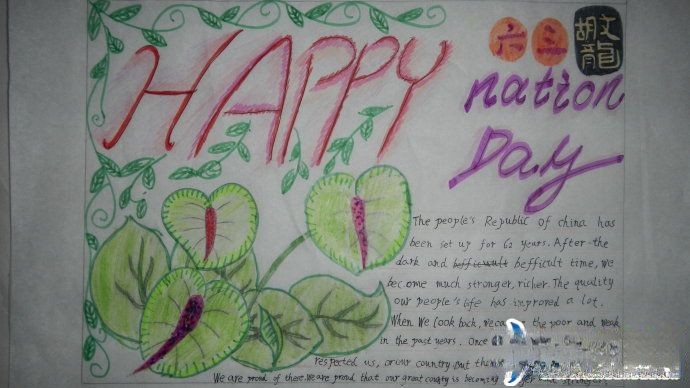 HAPPY
六三
胡文龍
nation
Day
The people's Republic of china has
been set up for 62 years. After the
dark and befficult time, we
become much stronger, richer. The quality
our people's life has improved a lot.
When we look back, we can the poor and weak
in the past years. Once
respected us, or our country. But
We are proud of there. We are proud that our great country is becoming